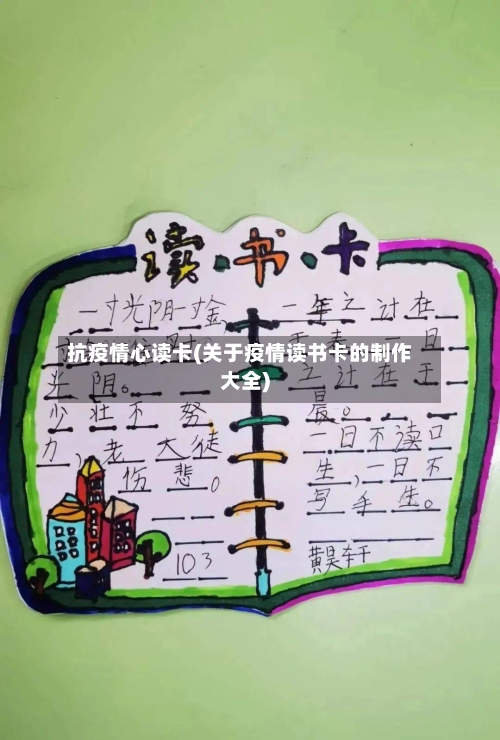 读·书·卡
一寸光阴一寸金
抗疫情心读卡(关于疫情读书卡的制作
大全)
光阴。
少壮不努
力,老大徒
伤悲。
103
一年之计在
日
之计在于
晨。
一日不读口
生,一日不
写手生。
黄昊轩